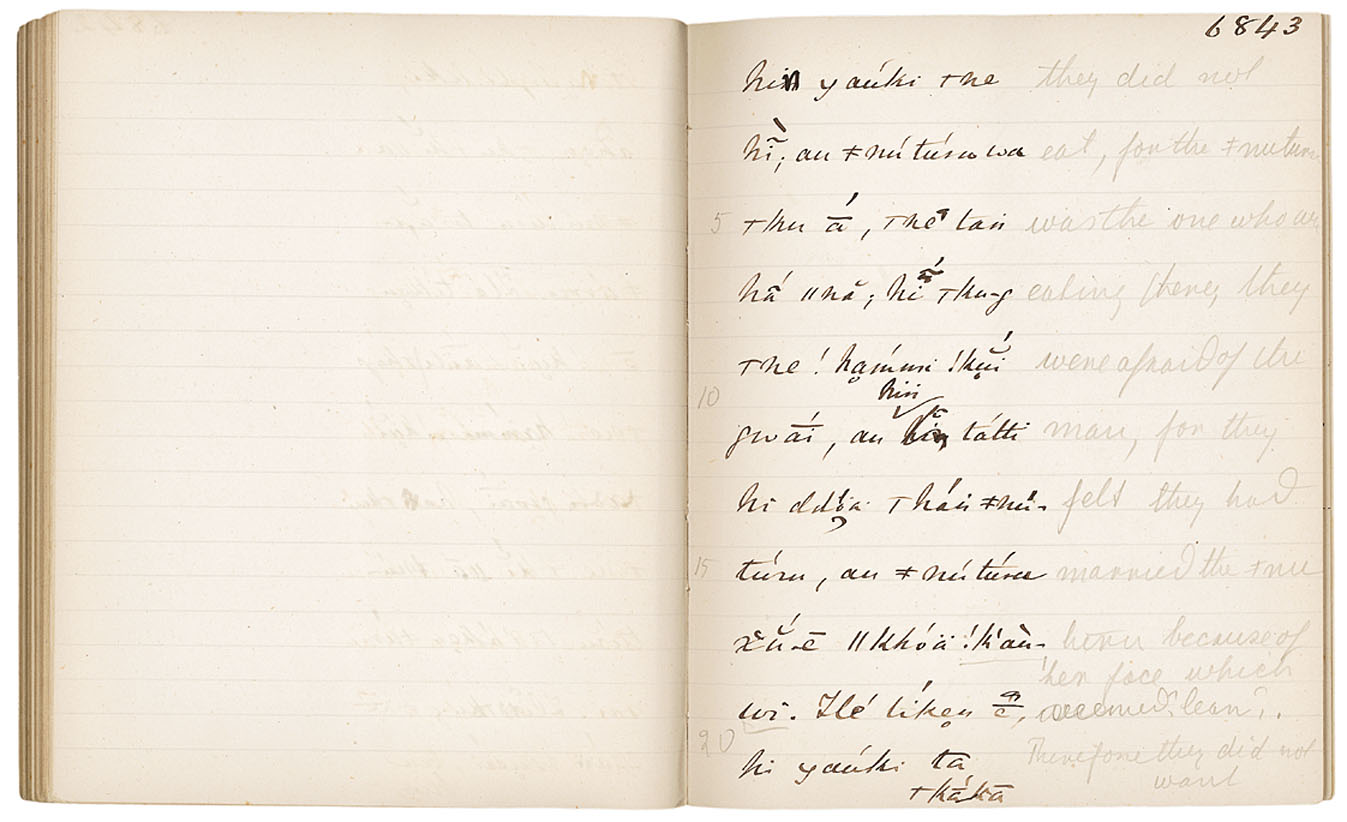 6843
hin yaúki ǂne they did not
hĩ; au ǂnútúru wa eat, for the ǂnuturu
5 ǂku ā́, ǀne tan was the one who
há ǁnă; hĩ́ ǀku-g eating there; they
ǀne ! hammi !kui were afraid of the
10 hin
gwāí, au tátti man, for they
hi ddóä ǀhán ǂnú- felt they had
15 túru, au ǂnútúru married the ǂnu
xŭ́-ē ǁkhóä !kaù- turu because of
her face which
wi. Hé tíken ē, seemed lean.
20 hi yaúki ta Therefore they did not
ǀkā́kā want